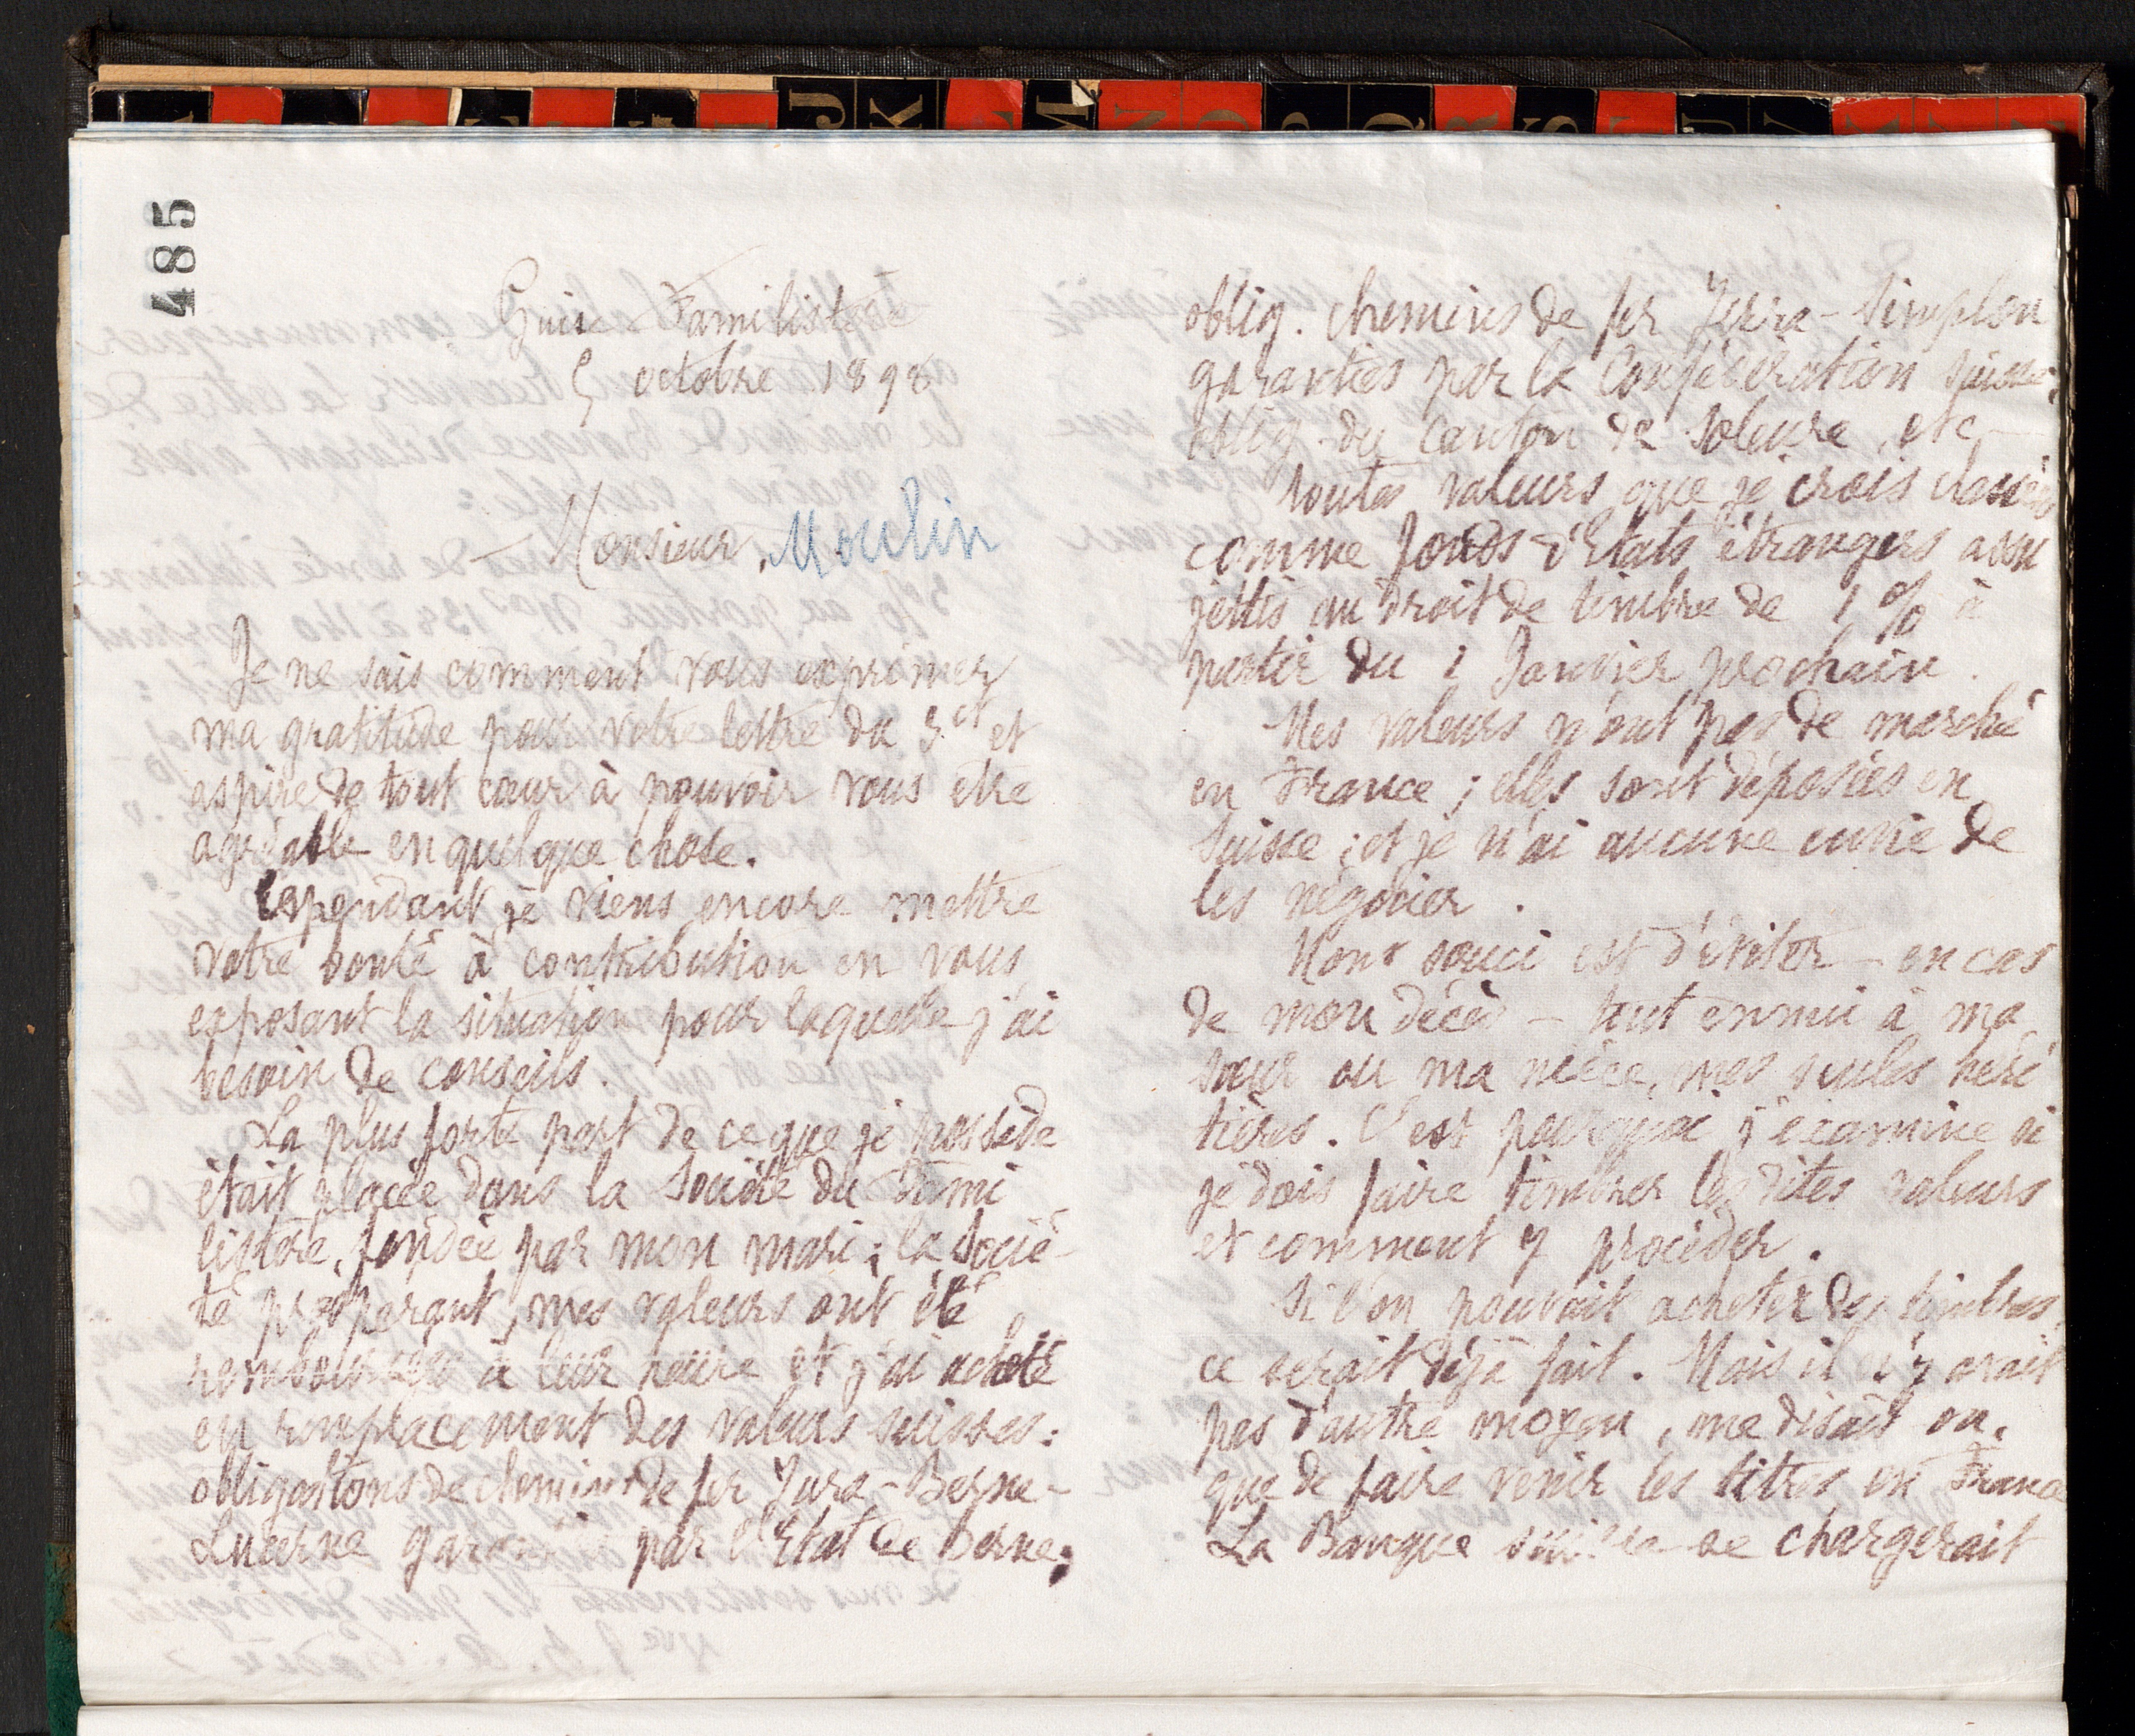 485
Guise Familistère
5 octobre 1898
Monsieur Moulin
Je ne sais comment vous exprimer
ma gratitude pour votre lettre du 3 ct et
aspire de tout cœur à pouvoir vous être
agréable en quelque chose.
Cependant je viens encore mettre
votre bonté à contribution en vous
exposant la situation pour laquelle j'ai
besoin de conseils.
La plus forte part de ce que je possède
était placée dans la Société du Fami
listère, fondée par mon mari ; la Socié-
té prospérant, mes valeurs ont été
remboursées à leur heure et j'ai acheté
en remplacement des valeurs suisses :
obligations de chemins de fer Jura-Berne-
Lucerne garanties par l'Etat de Berne ;
oblig. chemins de fer Jura-Simplon
garanties par la Confédération suisse ;
oblig. du canton de Soleure, etc, —
toutes valeurs que je crois classées
comme fonds d'Etats étrangers assu
jettis au droit de timbre de 1 % à
partir du 1 Janvier prochain.
Mes valeurs n'ont pas de marché
en France ; elles sont déposées en
Suisse ; et je n'ai aucune envie de
les négocier.
Mon souci est d'éviter - en cas
de mon décès - tout ennui à ma
sœur ou ma nièce, mes seules héri
tières. C'est pourquoi j'examine si
je dois faire timbrer les dites valeurs
et comment y procéder.
Si l'on pouvait acheter des timbres,
ce serait déjà fait. Mais il n'y avait
pas d'autre moyen, me disait on,
que de faire venir les titres en France
La Banque suisse se chargerait